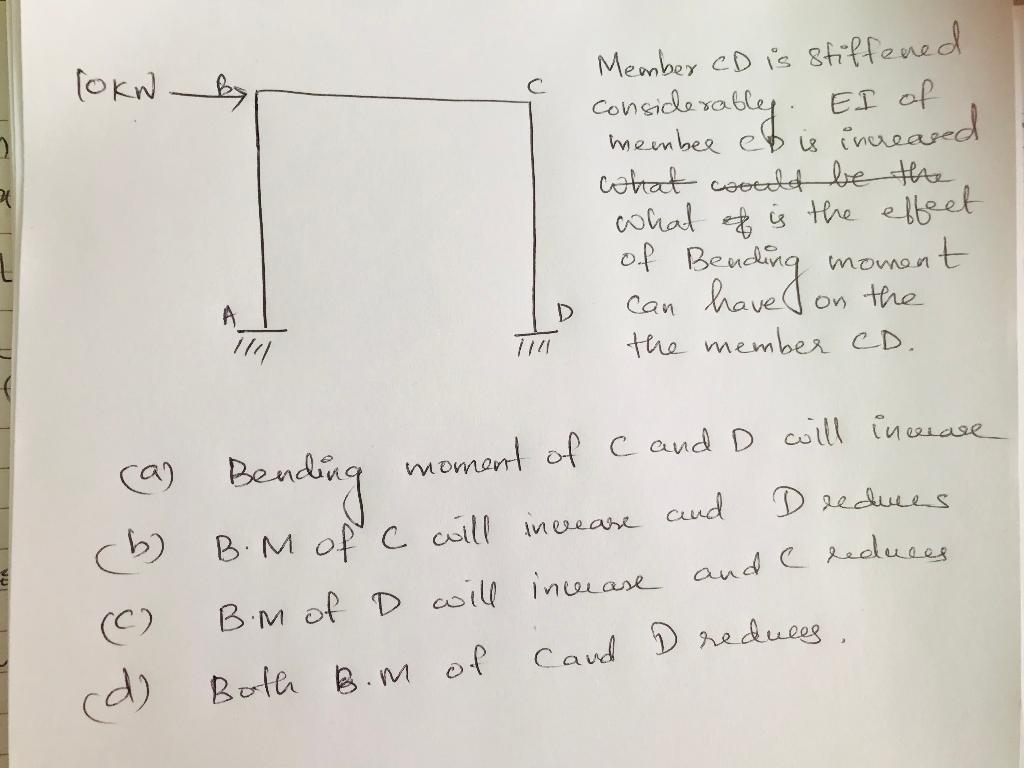 10KN
B
C
A
D
Member CD is stiffened
considerably. EI of
member CD is increased
what would be the
what is the effect
of Bending moment
can have on the
the member CD.
(a) Bending moment of C and D will increase
(b) B.M of C will increase and D reduces
(c) B.M of D will increase and C reduces
(d) Both B.M of C and D reduces.